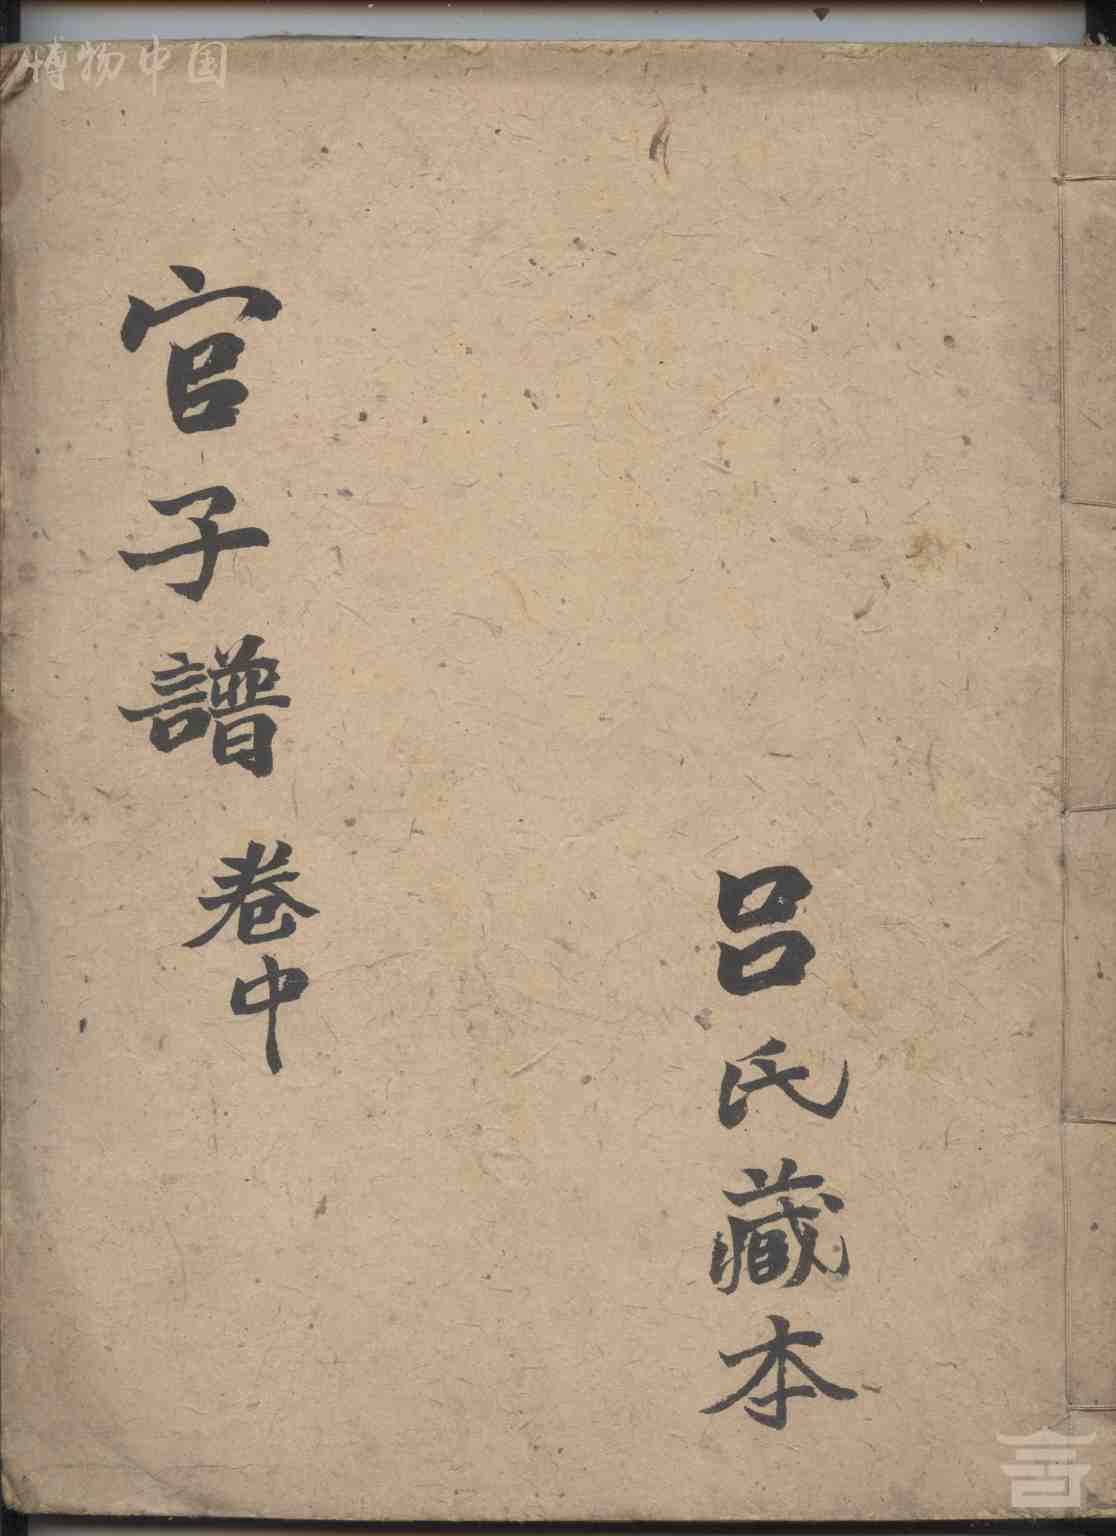 博物中国
官子譜 卷中
呂氏藏本